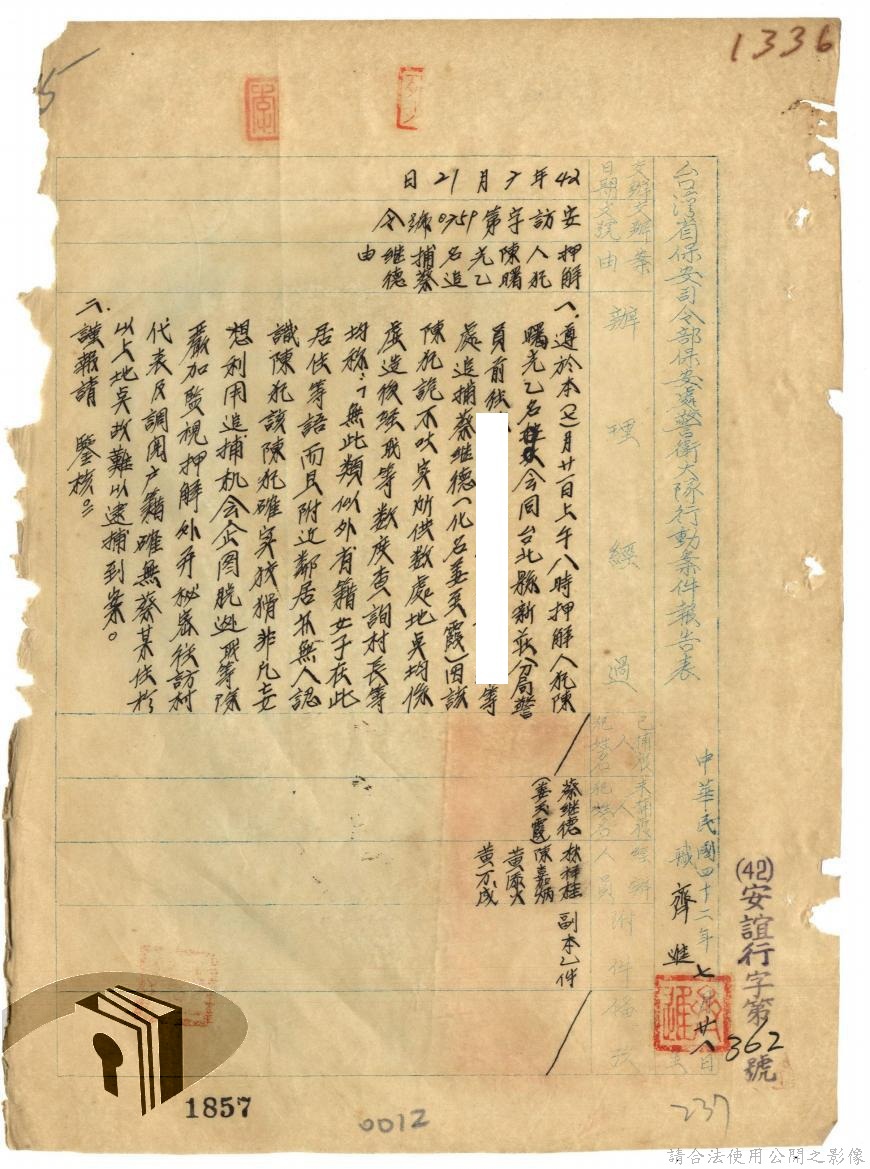 1336
台灣省保安司令部保安處警衛大隊行動案件報告表
中華民國四十二年七月廿八日
職 齊 進
(42)安誼行字第362號
交辦日期
交辦文號
案由
辦理經過
已捕獲人犯姓名
未捕獲人犯姓名
經辦人員
附件
備攷
42年7月21日
安訪字第0759號令
押解人犯陳曙光乙名追捕蔡继德由
一、遵於本(七)月廿一日上午八時押解人犯陳
曙光乙名會同台北縣新莊分局警
員前往
等
處追捕蔡继德(化名姜天霞)因該
陳犯詭不吐实所供数處地点均係
虛造後经职等数度查詢村長等
均称:「無此類似外省籍女子在此
居住等語而且附近鄰居亦無人認
識陳犯該陳犯確实狡猾非凡妄
想利用追捕机会企图脱逃职等除
嚴加監視押解外并秘密往訪村
代表及調閱户籍確無蔡某住於
以上地点故難以逮捕到案。
二、謹報請 鑒核。
蔡继德
(姜天霞)
林祥桂
陳嘉炳
黃添火
黃万成
副本乙件
1857
0012
237
請合法使用公開之影像